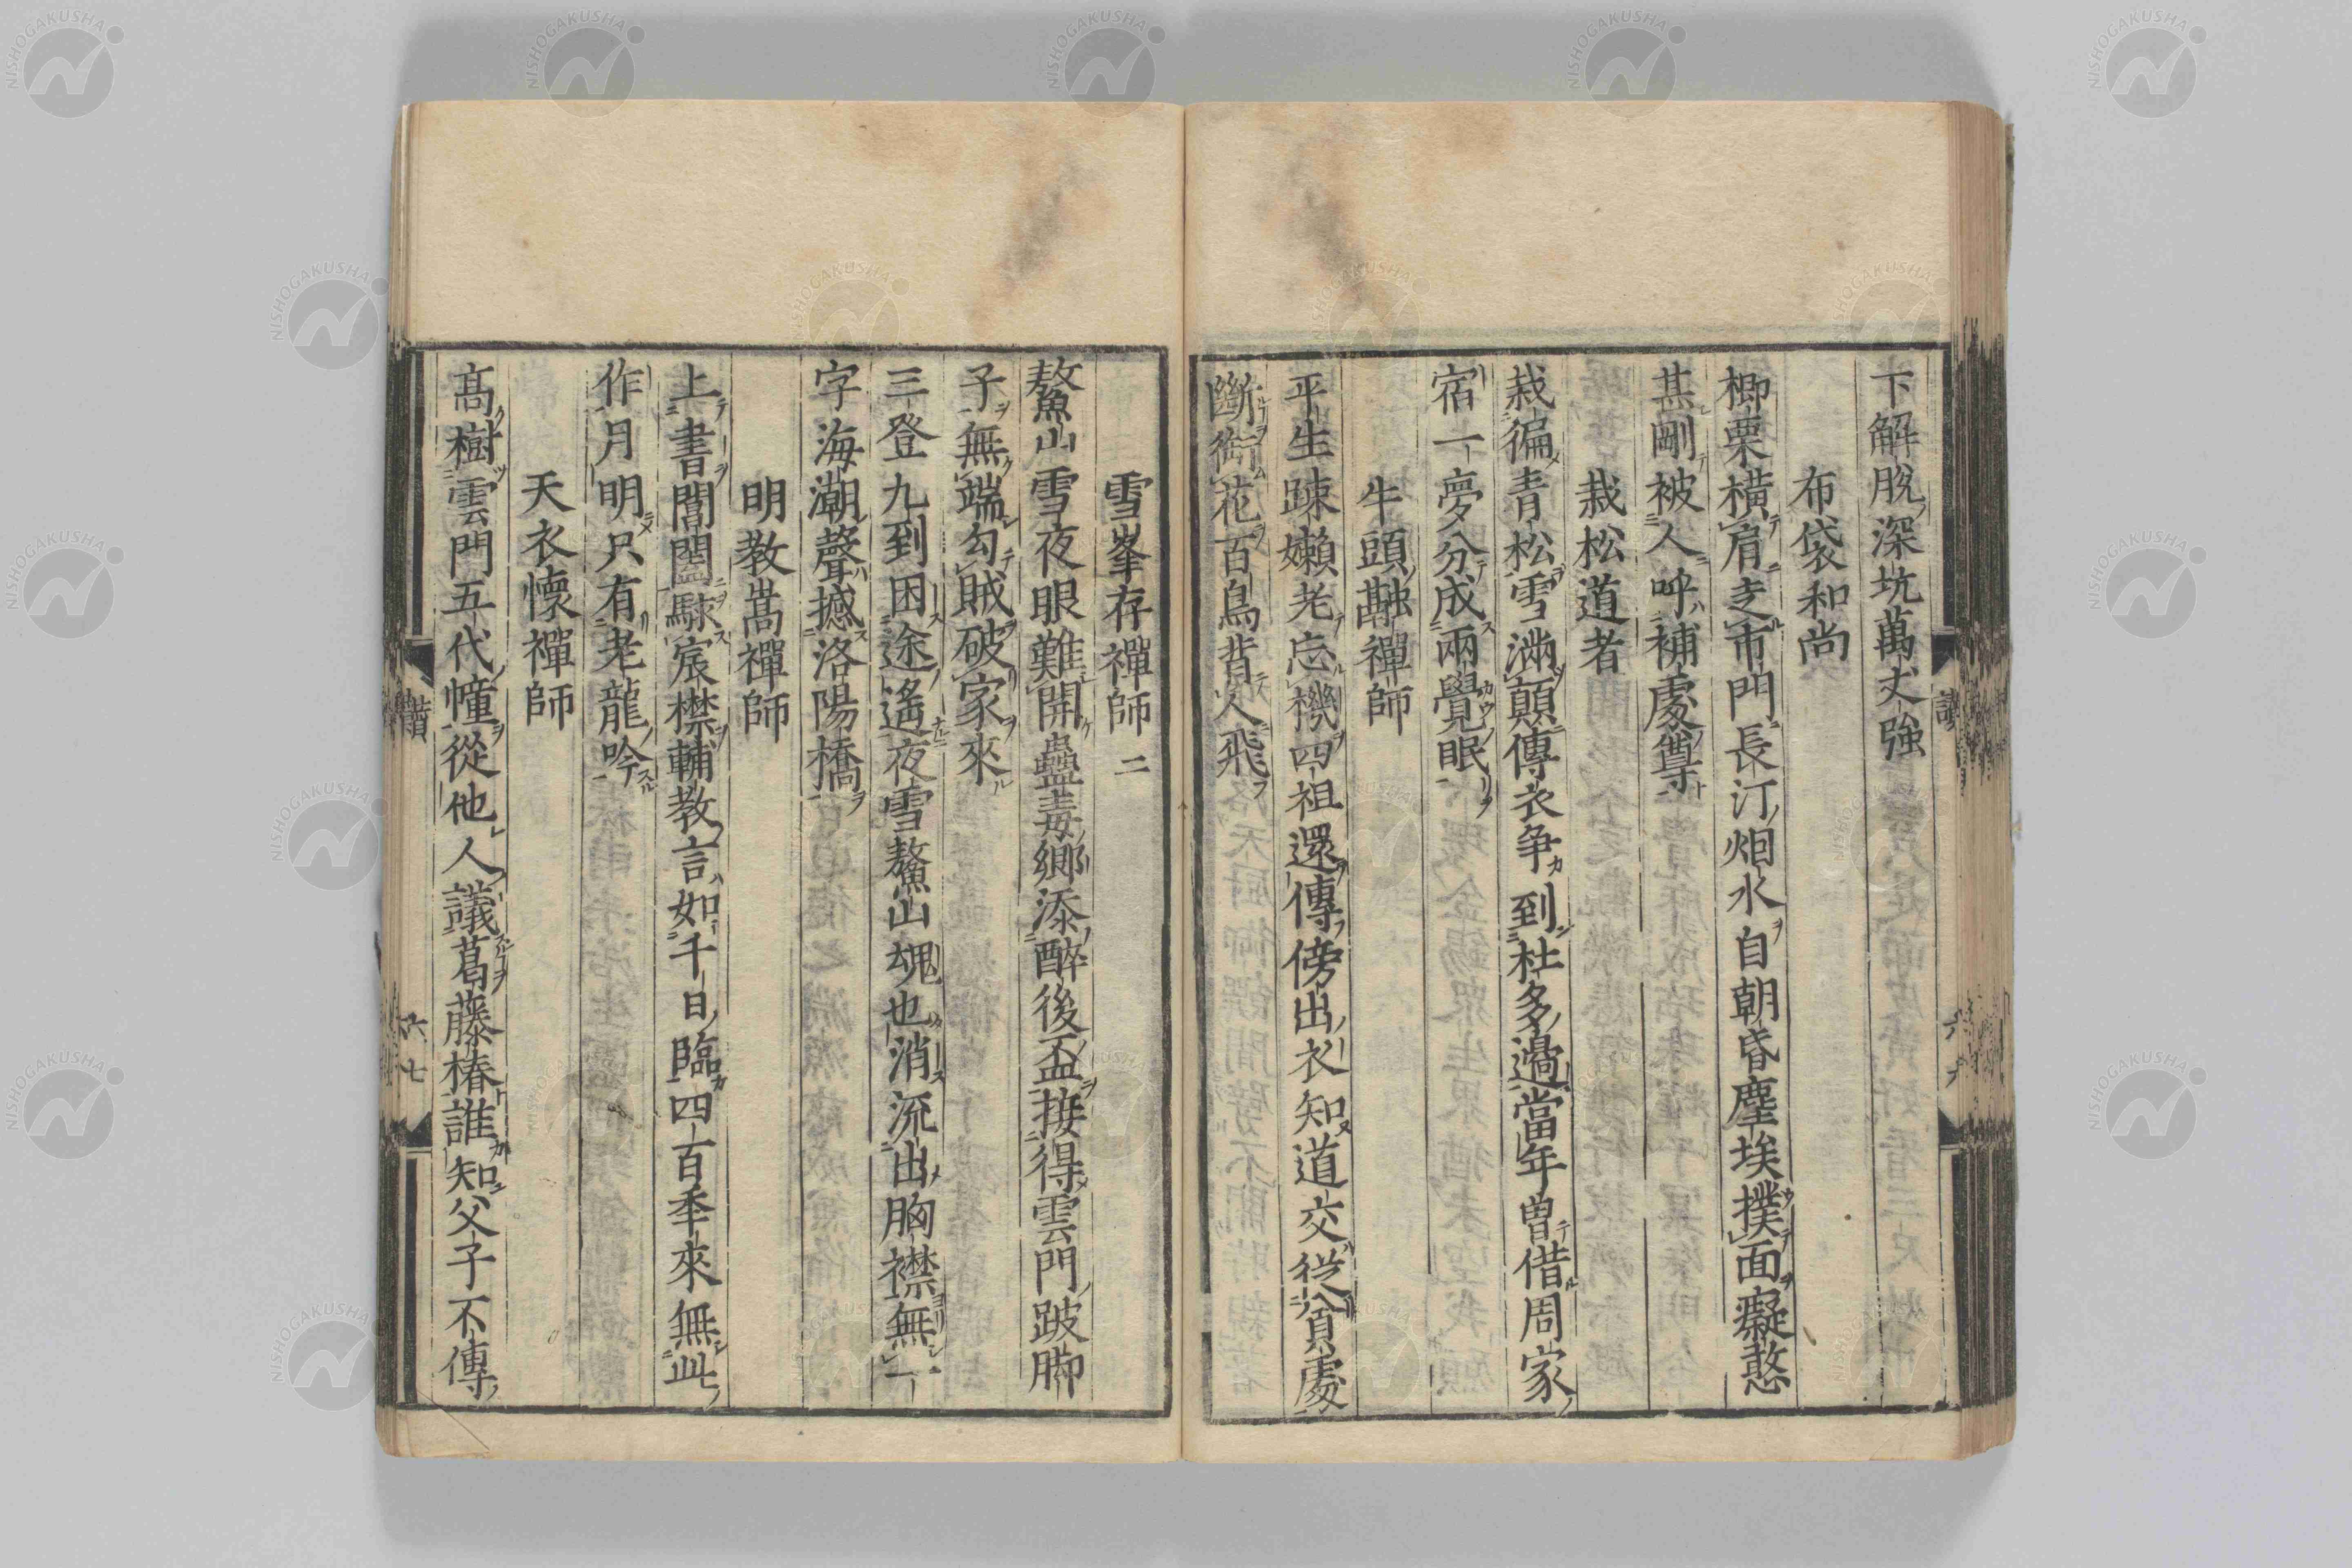 下解脱深坑萬丈強
布袋和尚
楖栗橫肩走市門長汀烟水自朝昏塵埃撲面癡憨
甚剛被人呼補處尊
栽松道者
栽徧青松雪滿顛傳衣爭到杜多邊當年曾借周家
宿一夢分成兩覺眠
牛頭融禪師
平生疎嬾老忘機四祖還傳傍出衣知道交從貧處
斷銜花百鳥背人飛
雪峯存禪師 二
鰲山雪夜眼難開蠱毒鄉添醉後盃接得雲門跛脚
子無端勾賊破家來
三登九到困途遙夜雪鰲山魂也消流出胸襟無一
字海潮聲撼洛陽橋
明教嵩禪師
上書閶闔駭宸襟輔教言如千日臨四百年來無此
作月明只有老龍吟
天衣懷禪師
高樹雲門五代幢從他人議葛藤樁誰知父子不傳
六七